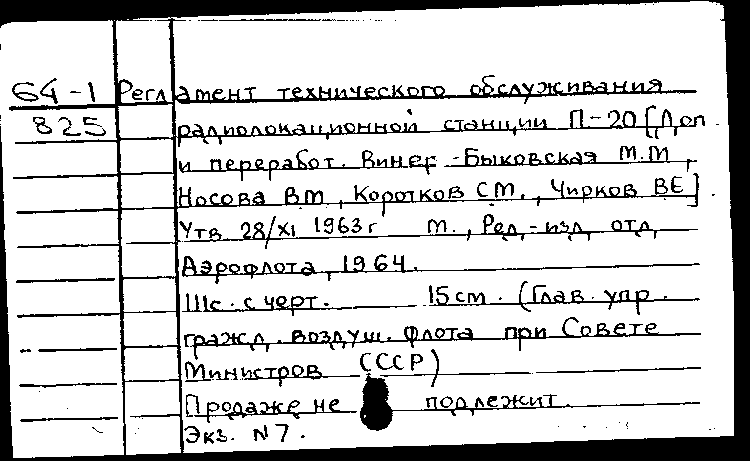 64-1 Регламент технического обслуживания
825 радиолокационной станции П-20 [Доп.
и переработ. Винер-Быковская М.М,
Носова ВМ, Коротков СМ., Чирков ВЕ].
Утв 28/XI 1963г М., Ред.-изд, отд,
Аэрофлота, 1964.
111с. с черт. 15см. (Глав. упр.
гражд. воздуш. флота при Совете
Министров СССР)
Продаже не подлежит.
Экз. N7.